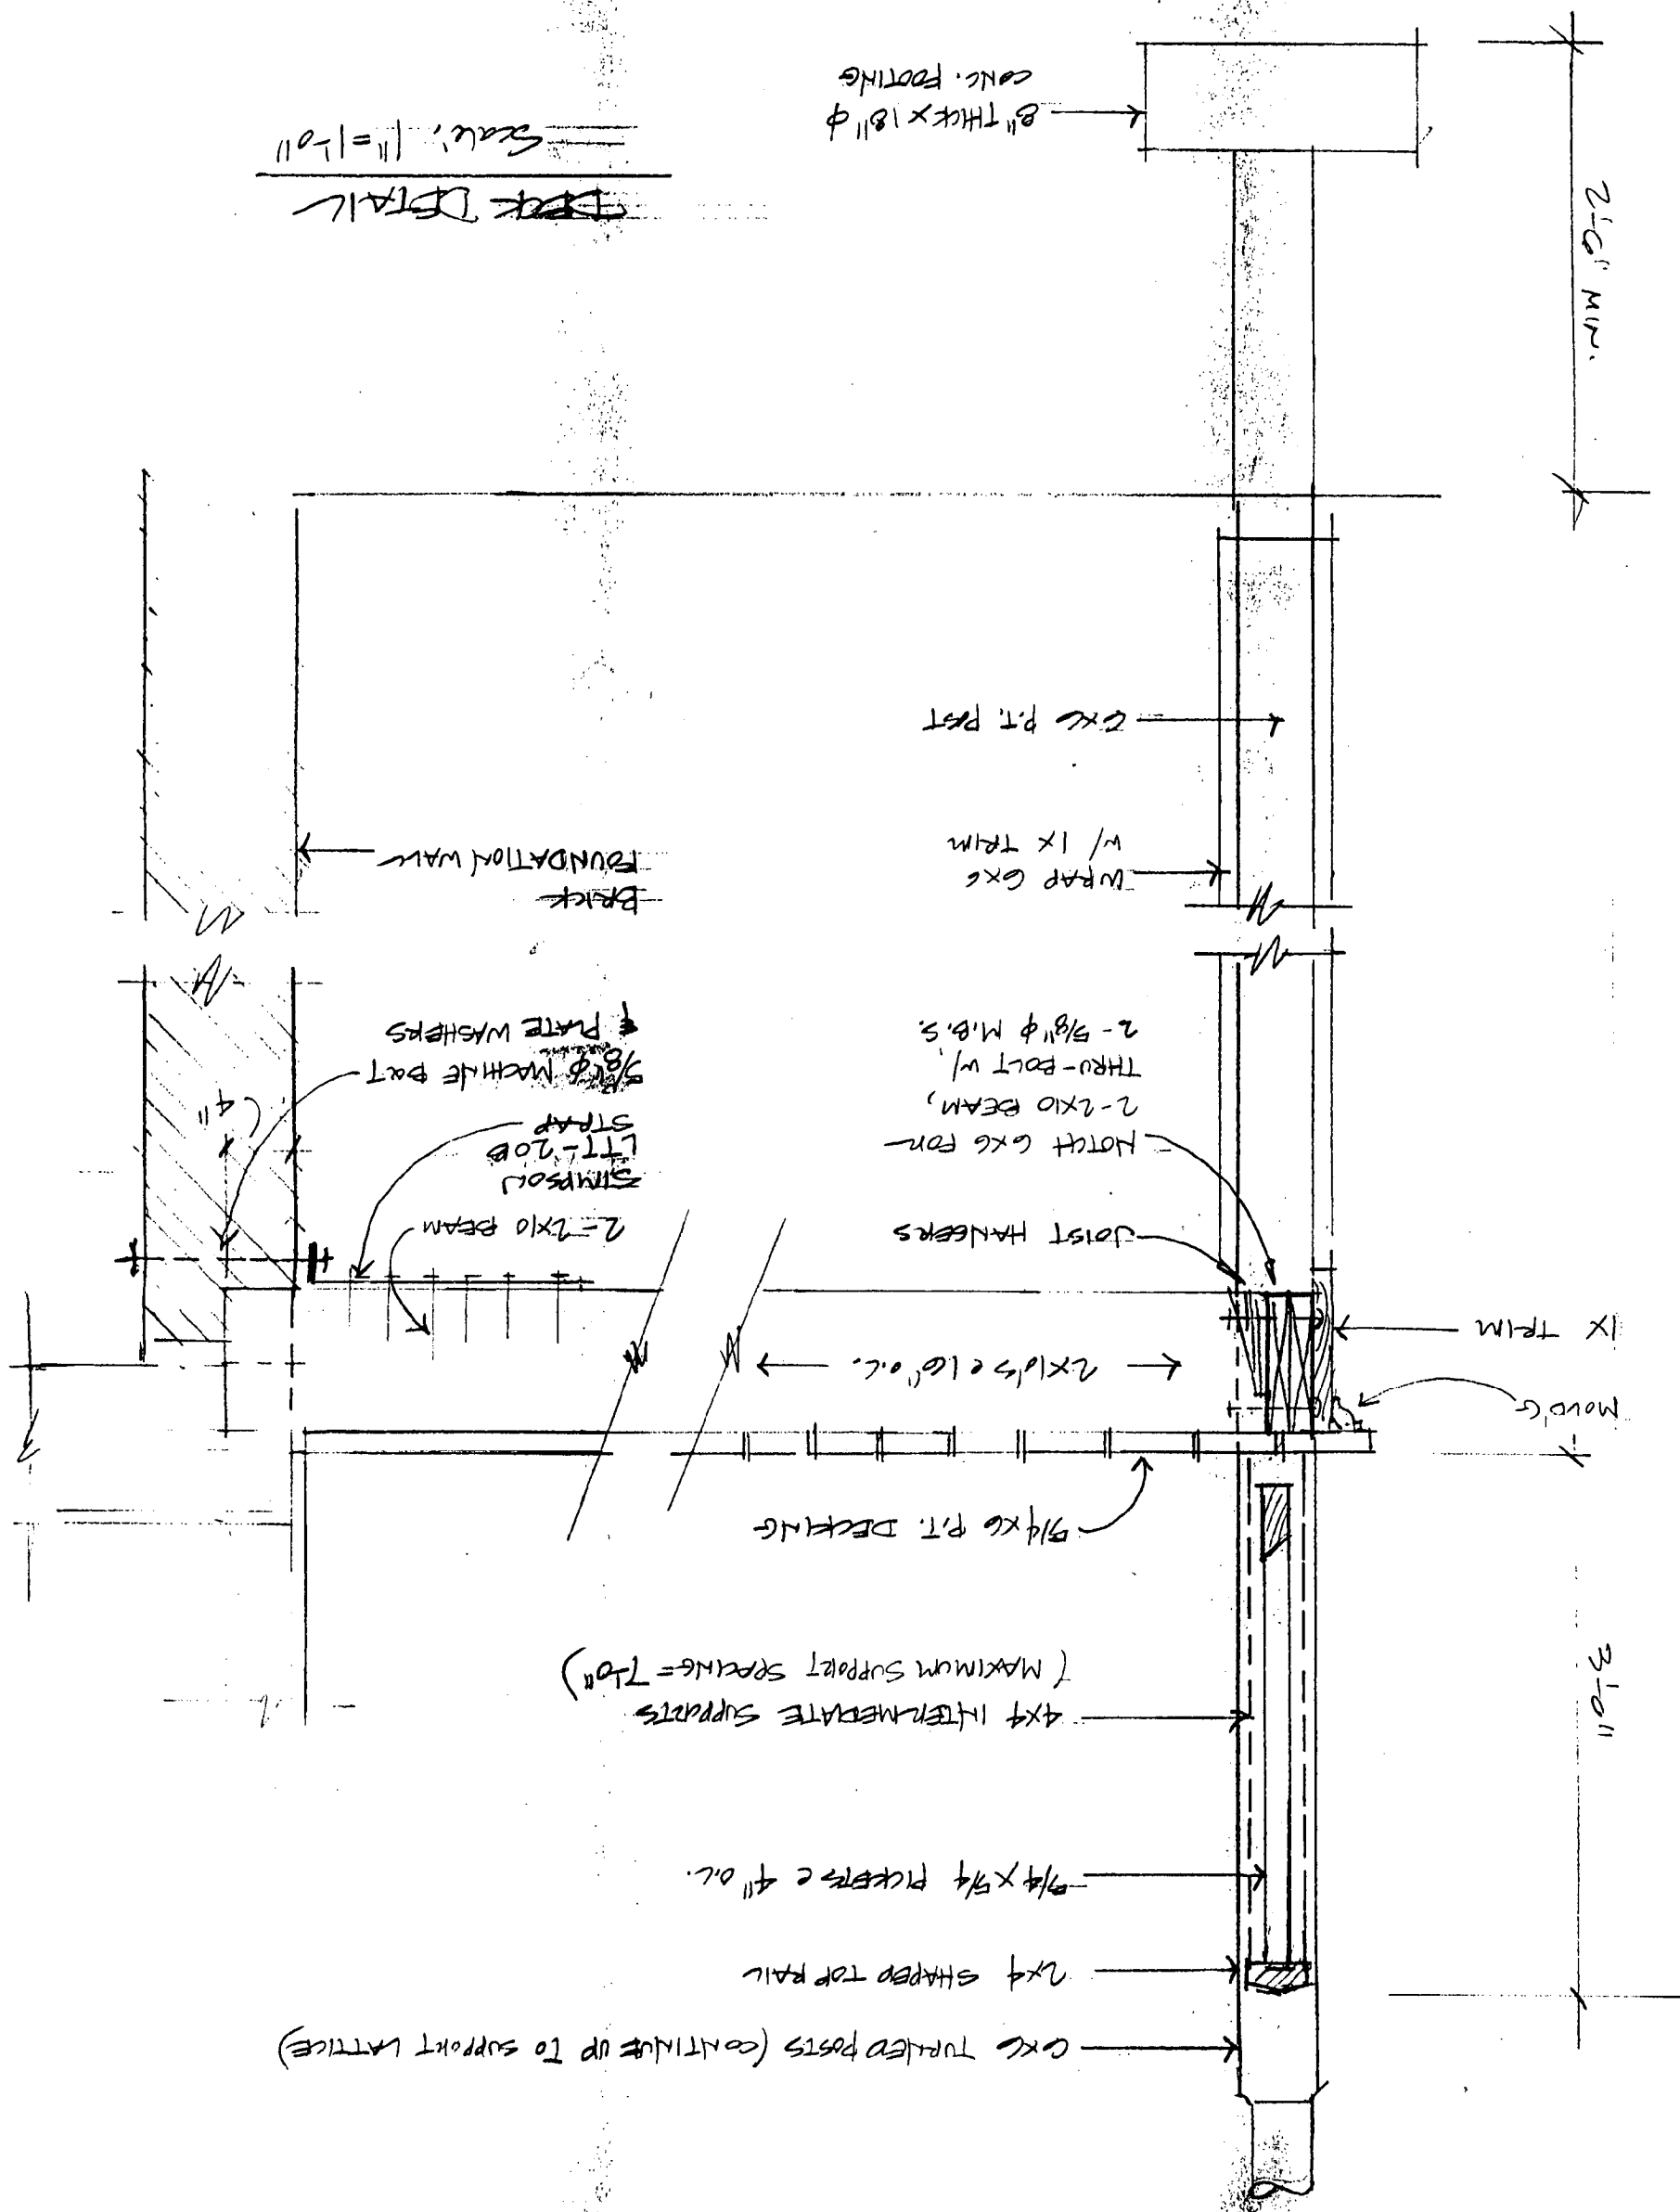 6X6 TURNED POSTS (CONTINUE UP TO SUPPORT LATTICE)
2X4 SHAPED TOP RAIL
5/4 X 5/4 PICKETS @ 4" O.C.
3'-0"
4X4 INTERMEDIATE SUPPORTS
(MAXIMUM SUPPORT SPACING = 7'-0")
5/4 X6 P.T. DECKING
MOULD'G
1X TRIM
2X10'S @ 16" O.C.
JOIST HANGERS
NOTCH 6X6 FOR
2-2X10 BEAM,
THRU-BOLT W/
2- 5/8" φ M.B.S.
2-2X10 BEAM
SIMPSON
LTT-20B
STRAP
5/8" φ MACHINE BOLT
& PLATE WASHERS
4"
WRAP 6X6
W/ 1X TRIM
BRICK
FOUNDATION WALL
6X6 P.T. POST
2'-6" MIN.
8" THICK X 18" φ
CONC. FOOTING
DECK DETAIL
Scale: 1"=1'-0"